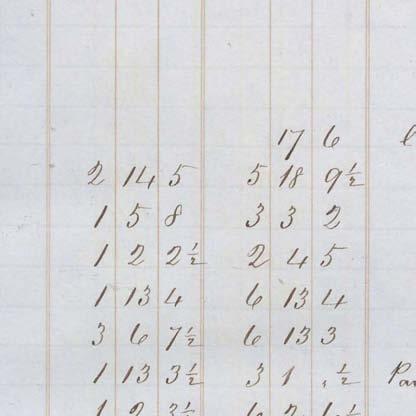 17 6
2 14 5 5 18 9½
1 5 8 3 3 2
1 2 2½ 2 4 5
1 13 4 6 13 4
3 6 7½ 6 13 3
1 13 3½ 3 1 . ½
1 2 3½